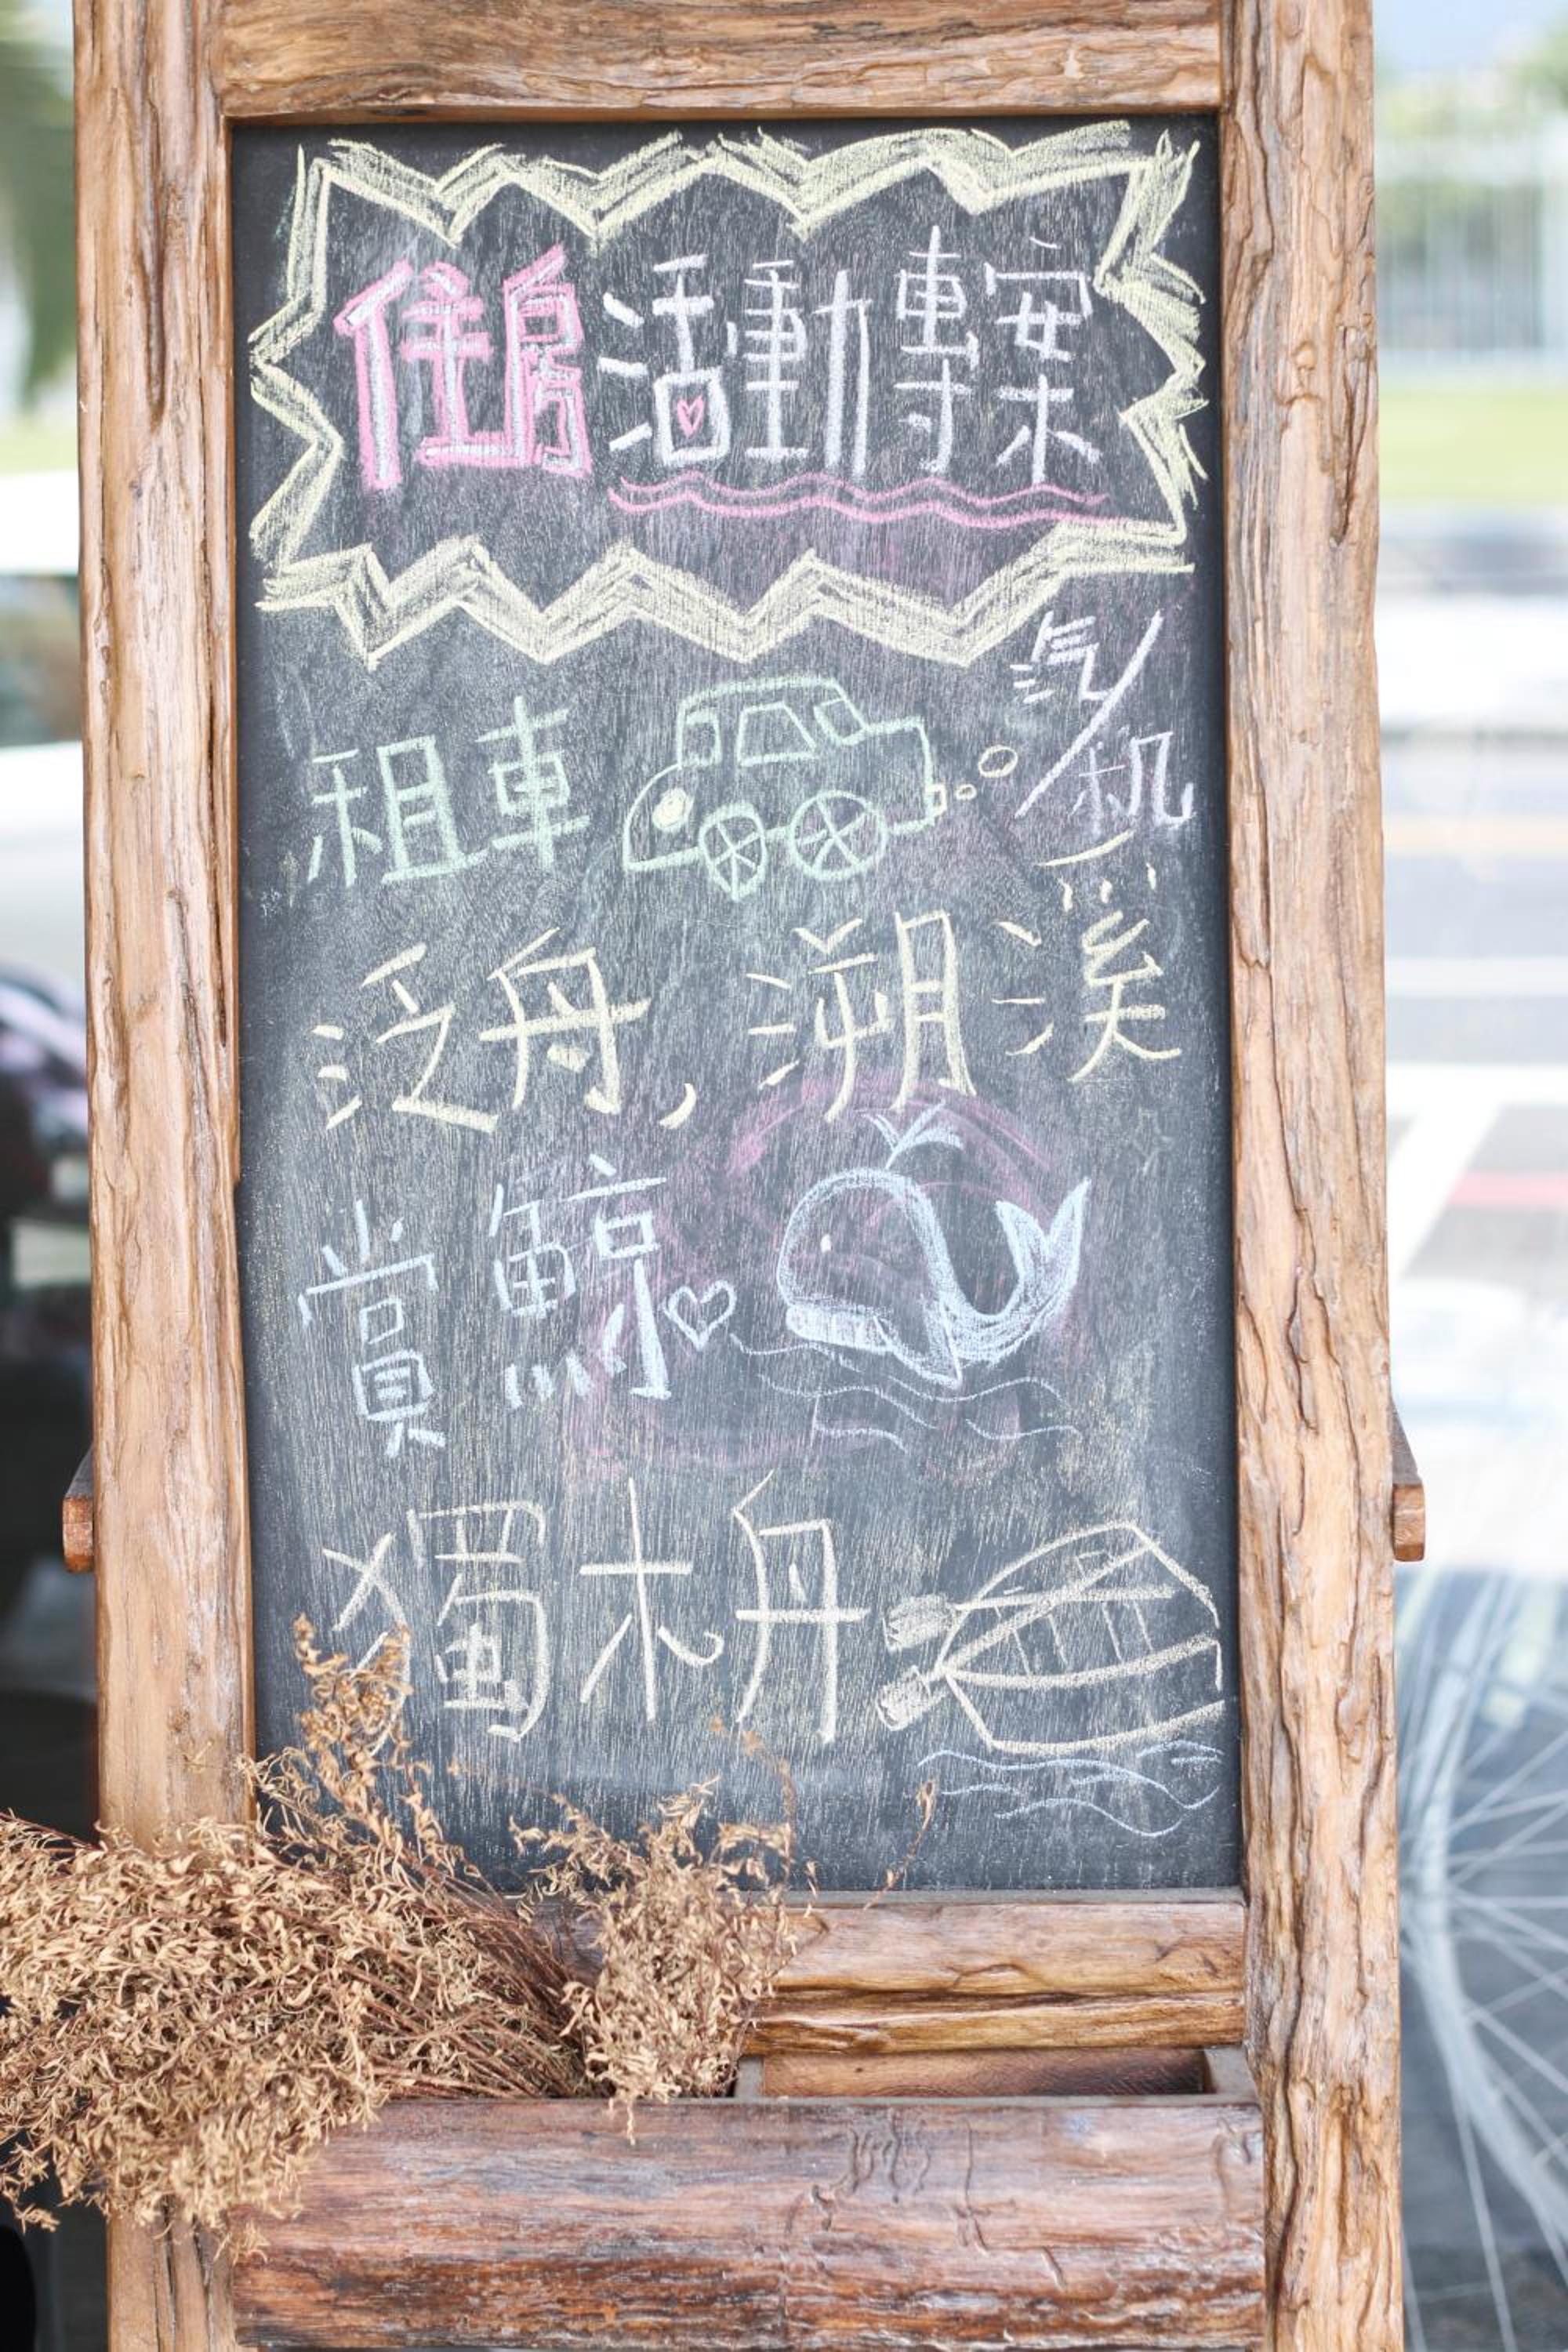 住房活動專案
租車 汽/机
泛舟, 溯溪
賞鯨
獨木舟